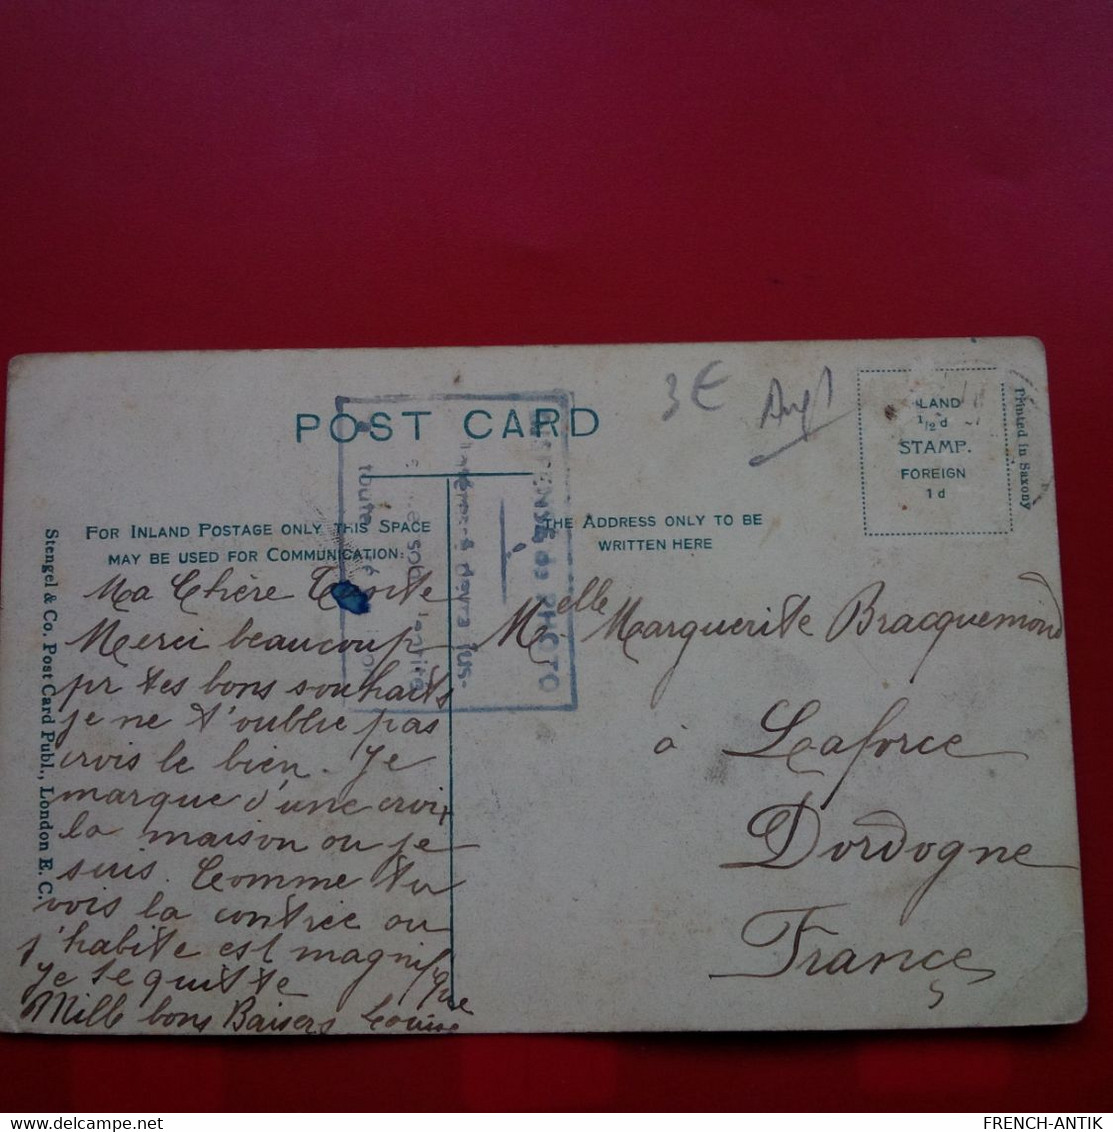 3€ Angl
POST CARD
INLAND
1/2 d
STAMP.
FOREIGN
1 d
Printed in Saxony
FOR INLAND POSTAGE ONLY THIS SPACE
MAY BE USED FOR COMMUNICATION:
THE ADDRESS ONLY TO BE
WRITTEN HERE
Stengel & Co. Post Card Publ., London E. C.
Ma Chère
Merci beaucoup
pr tes bons souhaits
je ne t'oublie pas
crois le bien. Je
marque d'une croix
la maison ou je
suis. Comme tu
vois la contrée ou
j'habite est magnifique
je te quitte
Mille bons Baisers Louise
Melle Marguerite Bracquemond
à Laforce
Dordogne
France
PHOTO
toute
FRENCH-ANTIK